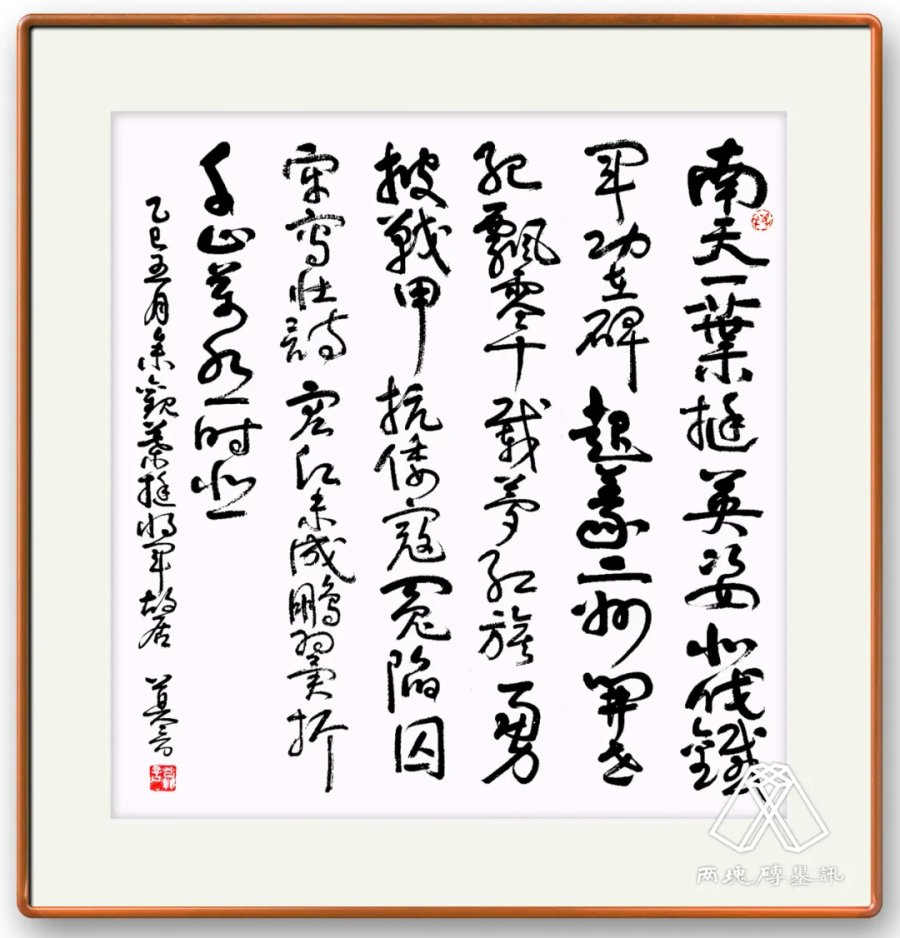 南天一葉挺英姿北伐鐵
軍功在碑起義二州開世
紀飄零十載夢紅旗勇
披戰甲抗倭寇冤陷囚
牢寫壯詩宏未成鵬翼折
千山萬水一時悲
乙巳五月余觀葉挺將軍故居 莫言
两塊磚墨訊